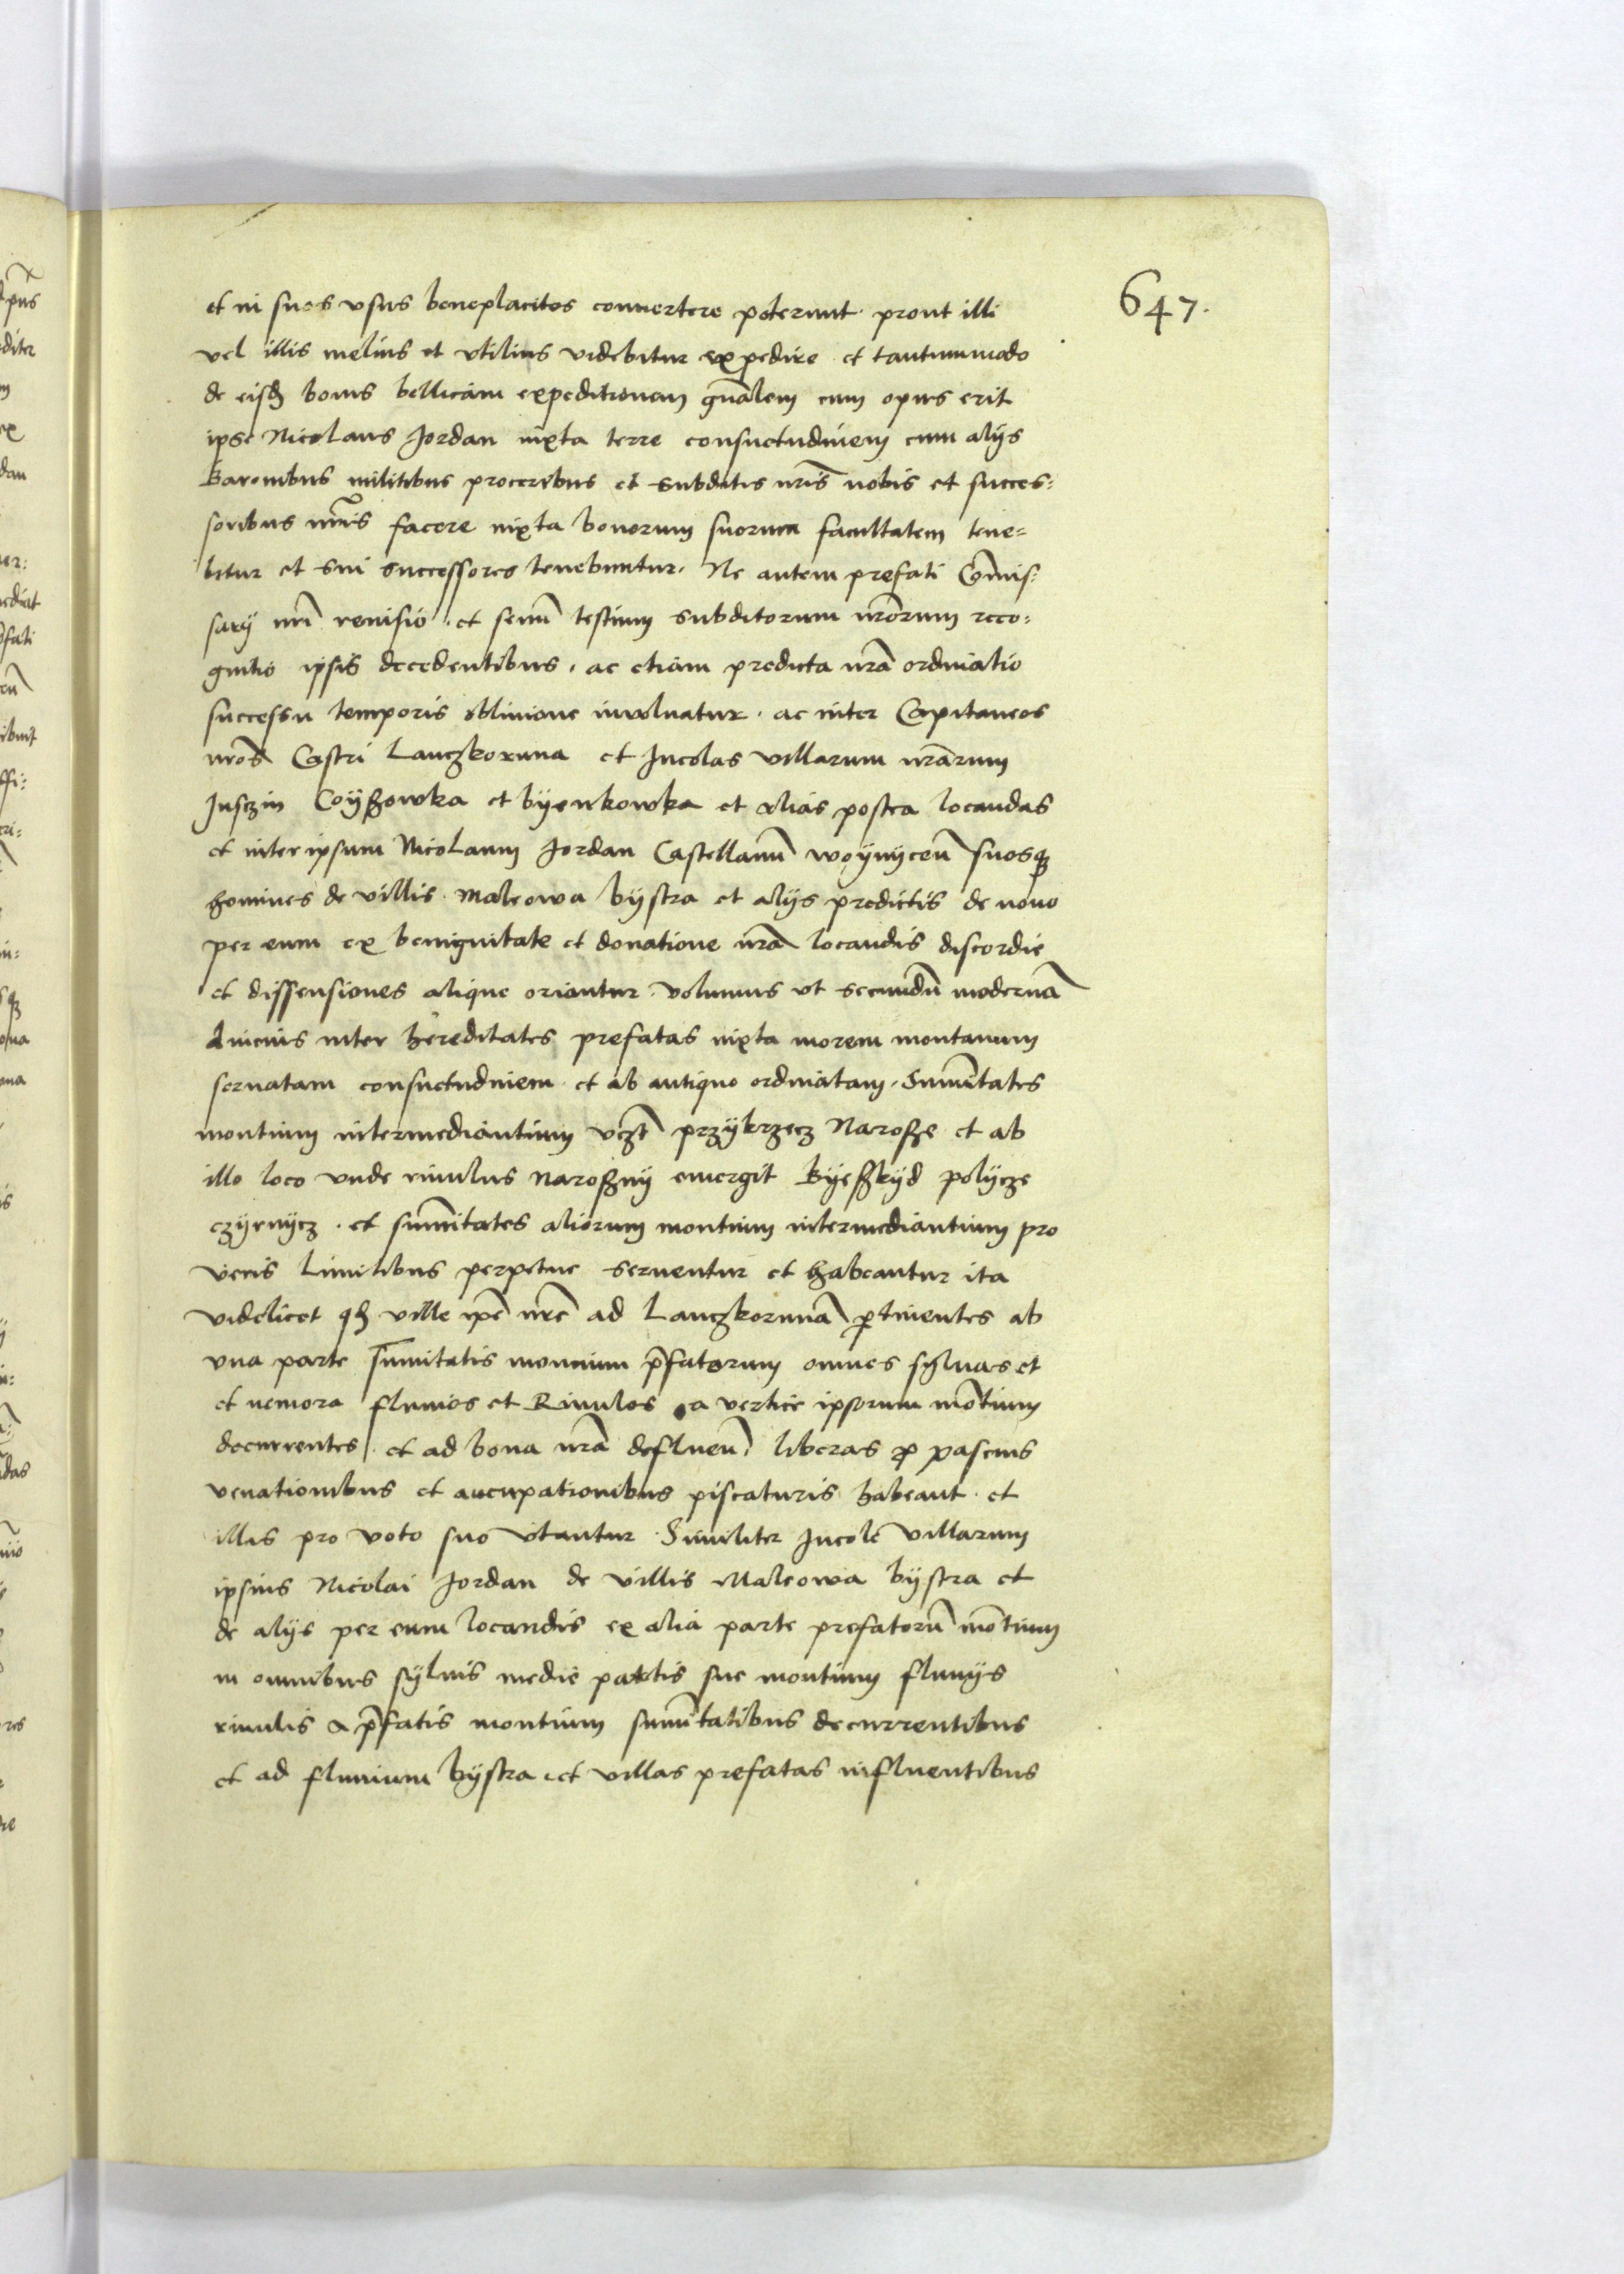 647.
et in suos vsus beneplacitos conuertere poterunt. prout illi
vel illis melius et vtilius videbitur expedire et tantummodo
de eisd bonis bellicam expeditionem gñalem cum opus erit
ipse Nicolaus Jordan iuxta terre consuetudinem cum alijs
Baronibus militibus proceribus et subditis nr̃is nobis et succes:
soribus nr̃is facere iuxta bonorum suorum facultatem tene=
bitur et sui successores tenebuntur. Ne autem prefati Com̃is:
sarij nr̃i reuisio. et senũ testium subditorum nr̃orum reco:
gnitio ipsis decedentibus. ac etiam predicta nr̃a ordinatio
successu temporis obliuione inuoluatur. ac inter Capitaneos
nr̃os Castri Lanczkoruna et Incolas villarum nr̃arum
Jusczin Coyszowka et byenkowka et alias postea locandas
et inter ipsum Nicolaum Jordan Castellanũ woynyceñ suosq
homines de villis Maleowa bystra et alijs predictis de nouo
per eum ex benignitate et donatione nr̃a locandis discordie
et dissensiones alique oriantur. volumus vt secundũ modernã
Aincuis inter hereditates prefatas iuxta morem montanum
seruatam consuetudinem. et ab antiquo ordinatam. Sum̃itates
montium intermediantium vczt przykrzecz Narosze et ab
illo loco vnde riuulus naroszny emergit Byeszkyd polycze
czyrnycz. et sum̃itates aliorum montium intermediantium pro
veris limitibus perpetue seruentur et habeantur ita
videlicet qd ville ip̃e nr̃e ad Lanczkorunã ptinentes ab
vna parte sum̃itatis montium p̃fatorum omnes syluas et
et nemora fluuios et Riuulos a vertice ipsorum mõtium
decurrentes. et ad bona nr̃a defluen̄. liberas p pascuis
venationibus et aucupationibus piscaturis habeant. et
illis pro voto suo vtantur. Similiter Incole villarum
ipsius Nicolai Jordan de villis Maleowa bystra et
de alijs per eum locandis ex alia parte prefatorũ mõtium
in omnibus syluis medie partis sue montium fluuijs
riuulis a p̃fatis montium sum̃itatibus decurrentibus
et ad fluuium bystra. et villas prefatas influentibus